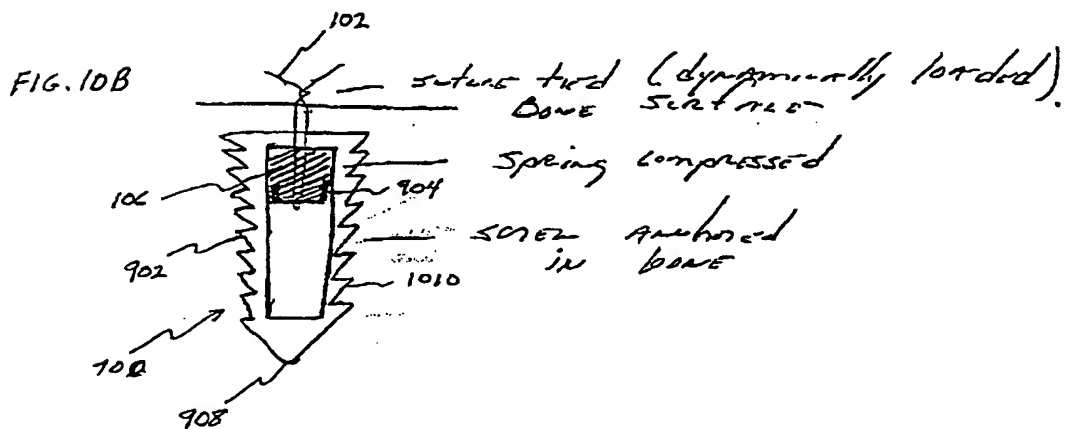 102
FIG. 10B
suture tied (dynamically loaded).
Bone surface
Spring compressed
106
904
screw anchored
in bone
902
1010
700
908